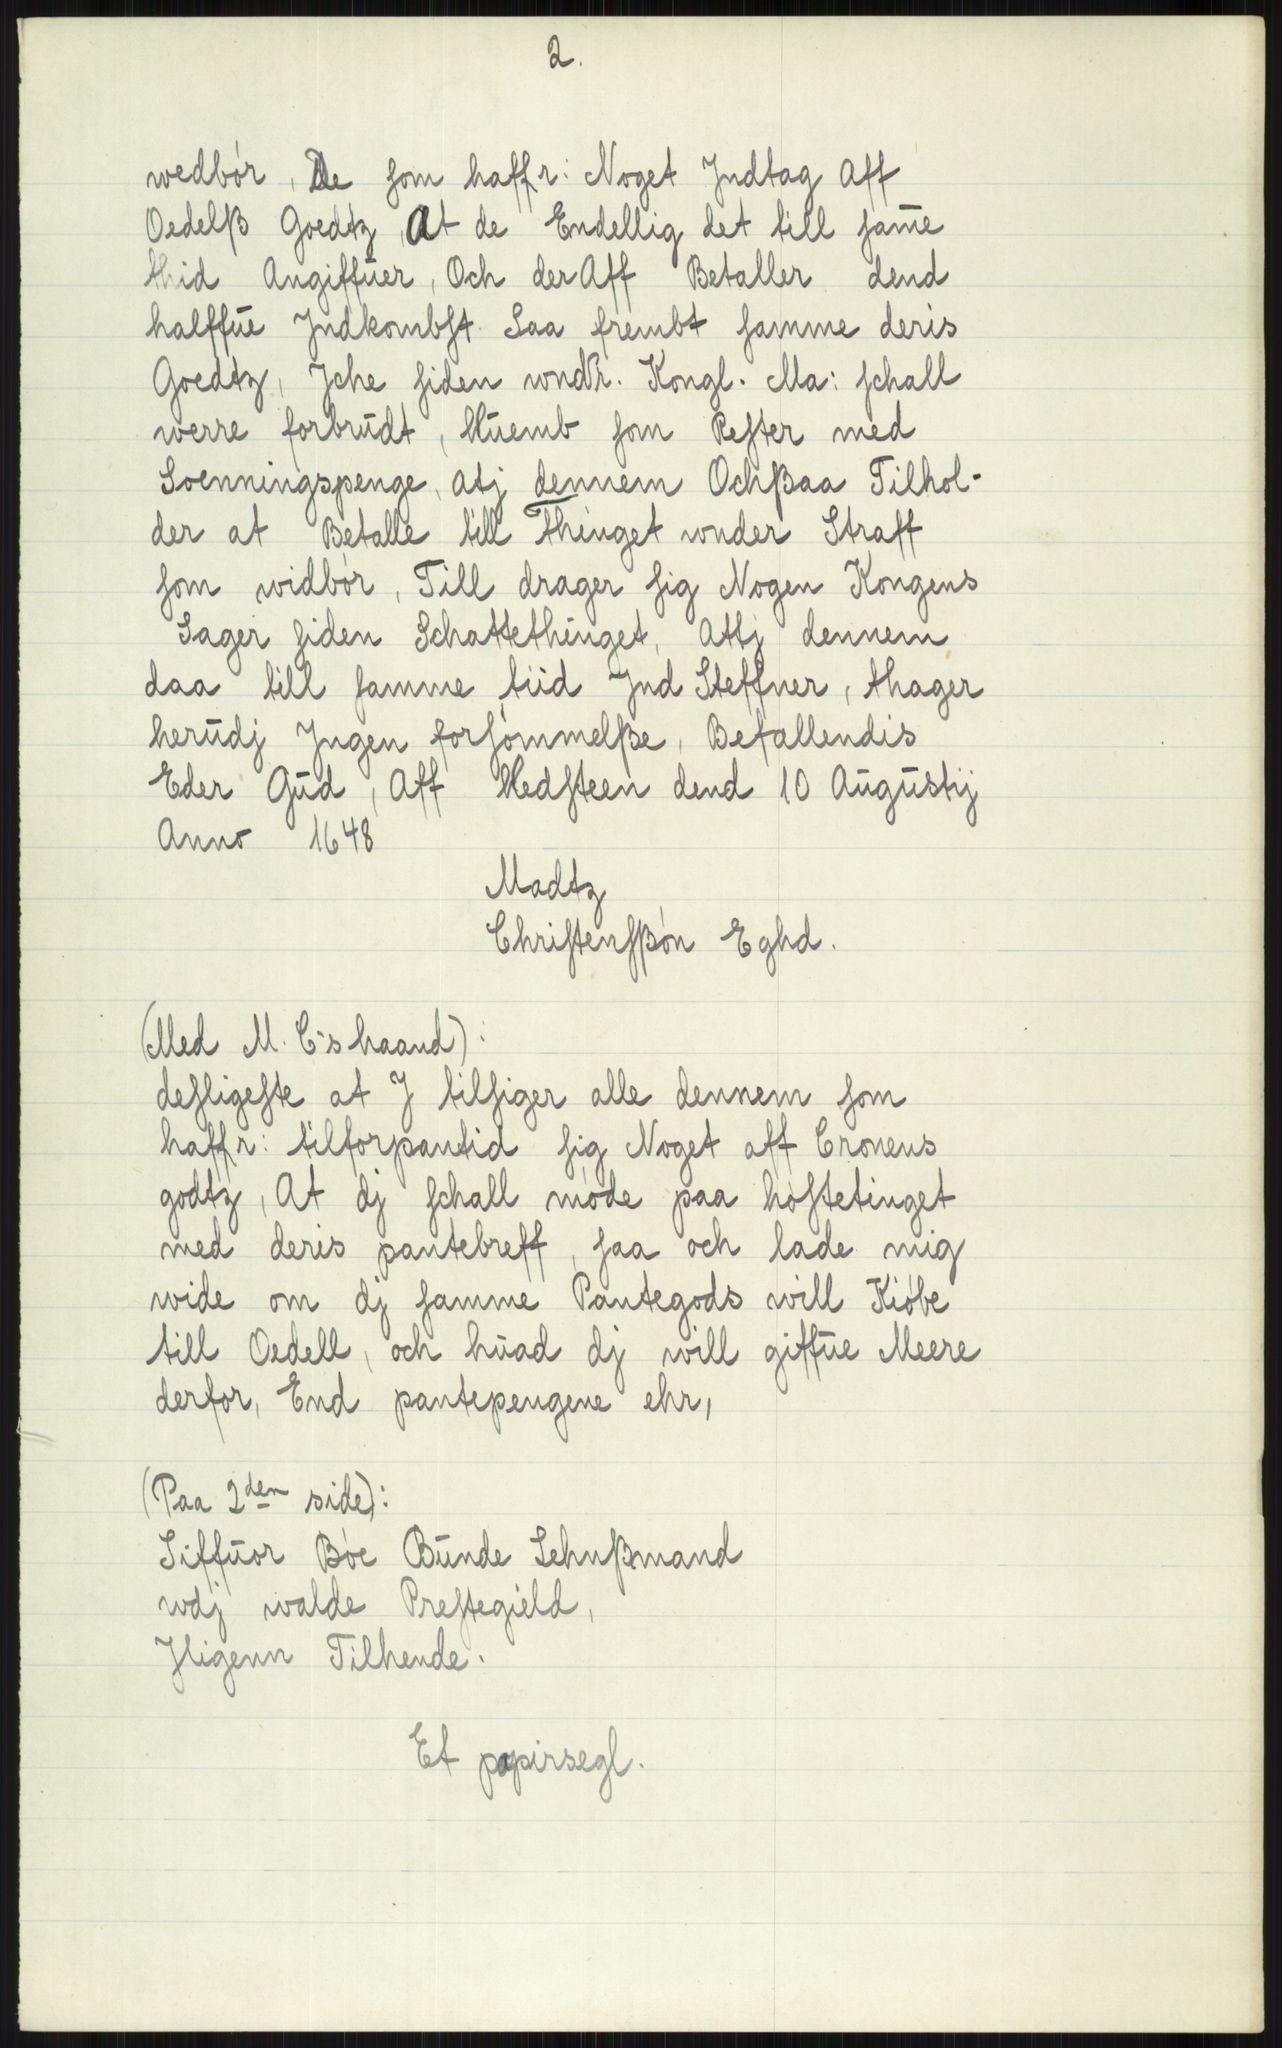 2.
wedbór, De som haffr: Noget Jndtag Aff
Oedelß Goedtz, At de Endellig det till sam̄e
thid Angiffūer, Och der Aff Betaller dend
halffūe Jndkombst Saa frembt samme deris
Goedtz, Jche siden wndr. Kongl. Ma: schall
werre forbrūdt, Hūemb som Rester med
Soenningspenge, atj dennem Ochßaa Tilhol-
der at Betalle till Thinget wnder Straff
som widbór, Till drager sig Nogen Kongens
Sager siden Schattethinget, Attj dennem
daa till samme tiid Jnd Steffner, thager
herūdj Jngen forsómmelße, Befallendis
Eder Gūd, Aff Hedsteen dend 10 Aūgūstij
Anno 1648
Madtz
Christensßón Eghd.
(Med M. C-s haand):
desligeste at J tilsiger alle dennem som
haffr: tilforpantid sig Noget aff Cronens
godtz, At dj schall móde paa hóstetinget
med deris pantebreff, saa och lade mig
wide om dj samme Pantegods will Kióbe
till Oedell, och hūad dj will giffūe Meere
derfor, End pantepengene ehr,
(Paa 2den side):
Siffūor Bóe Būnde Lehnßmand
wdj walde Prestegield,
Jligenn Tilhende.
Et papirsegl.